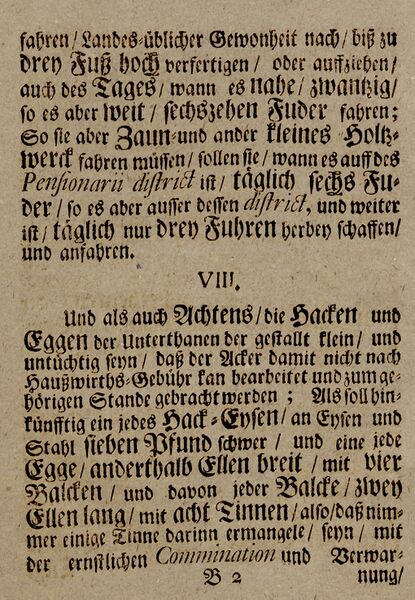 fahren / Landes-üblicher Gewonheit nach / biß zu
drey Fuß hoch verfertigen / oder auffziehen /
auch des Tages / wann es nahe / zwantzig /
so es aber weit / sechszehen Fuder fahren;
So sie aber Zaun- und ander kleines Holtz-
werck fahren müssen / sollen sie / wann es auff des
Pensionarii district ist / täglich sechs Fu-
der / so es aber ausser dessen district, und weiter
ist / täglich nur drey Fuhren herbey schaffen /
und anfahren.
VIII.
Und als auch Achtens / die Hacken und
Eggen der Unterthanen der gestallt klein / und
untüchtig seyn / daß der Acker damit nicht nach
Haußwirths-Gebühr kan bearbeitet und zum ge-
hörigen Stande gebracht werden; Als soll hin-
künfftig ein jedes Hack-Eysen / an Eysen und
Stahl sieben Pfund schwer / und eine jede
Egge / anderthalb Ellen breit / mit vier
Balcken / und davon jeder Balcke / zwey
Ellen lang / mit acht Tinnen / also / daß nim-
mer einige Tinne darinn ermangele / seyn / mit
der ernstlichen Commination und Verwar-
B 2 nung /